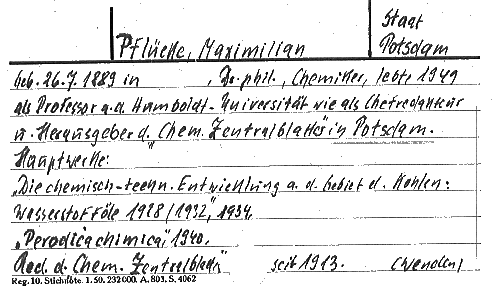 Staat
Pflücke, Maximilian
Potsdam
geb. 26.7.1889 in , Dr. phil., Chemiker, lebte 1949
als Professor a.d. Humboldt-Universität wie als Chefredakteur
u. Herausgeber d. „Chem. Zentralblatts" in Potsdam.
Hauptwerke:
„Die chemisch-techn. Entwicklung a. d. Gebiet d. Kohlen=
wasserstofföle 1928/1932", 1934.
„Perodica chimica", 1940.
Red. d. Chem. Zentralblatts seit 1913. (Wenden)
Reg. 10. Stichfote. 1. 50. 232000. A. 803. S. 4062